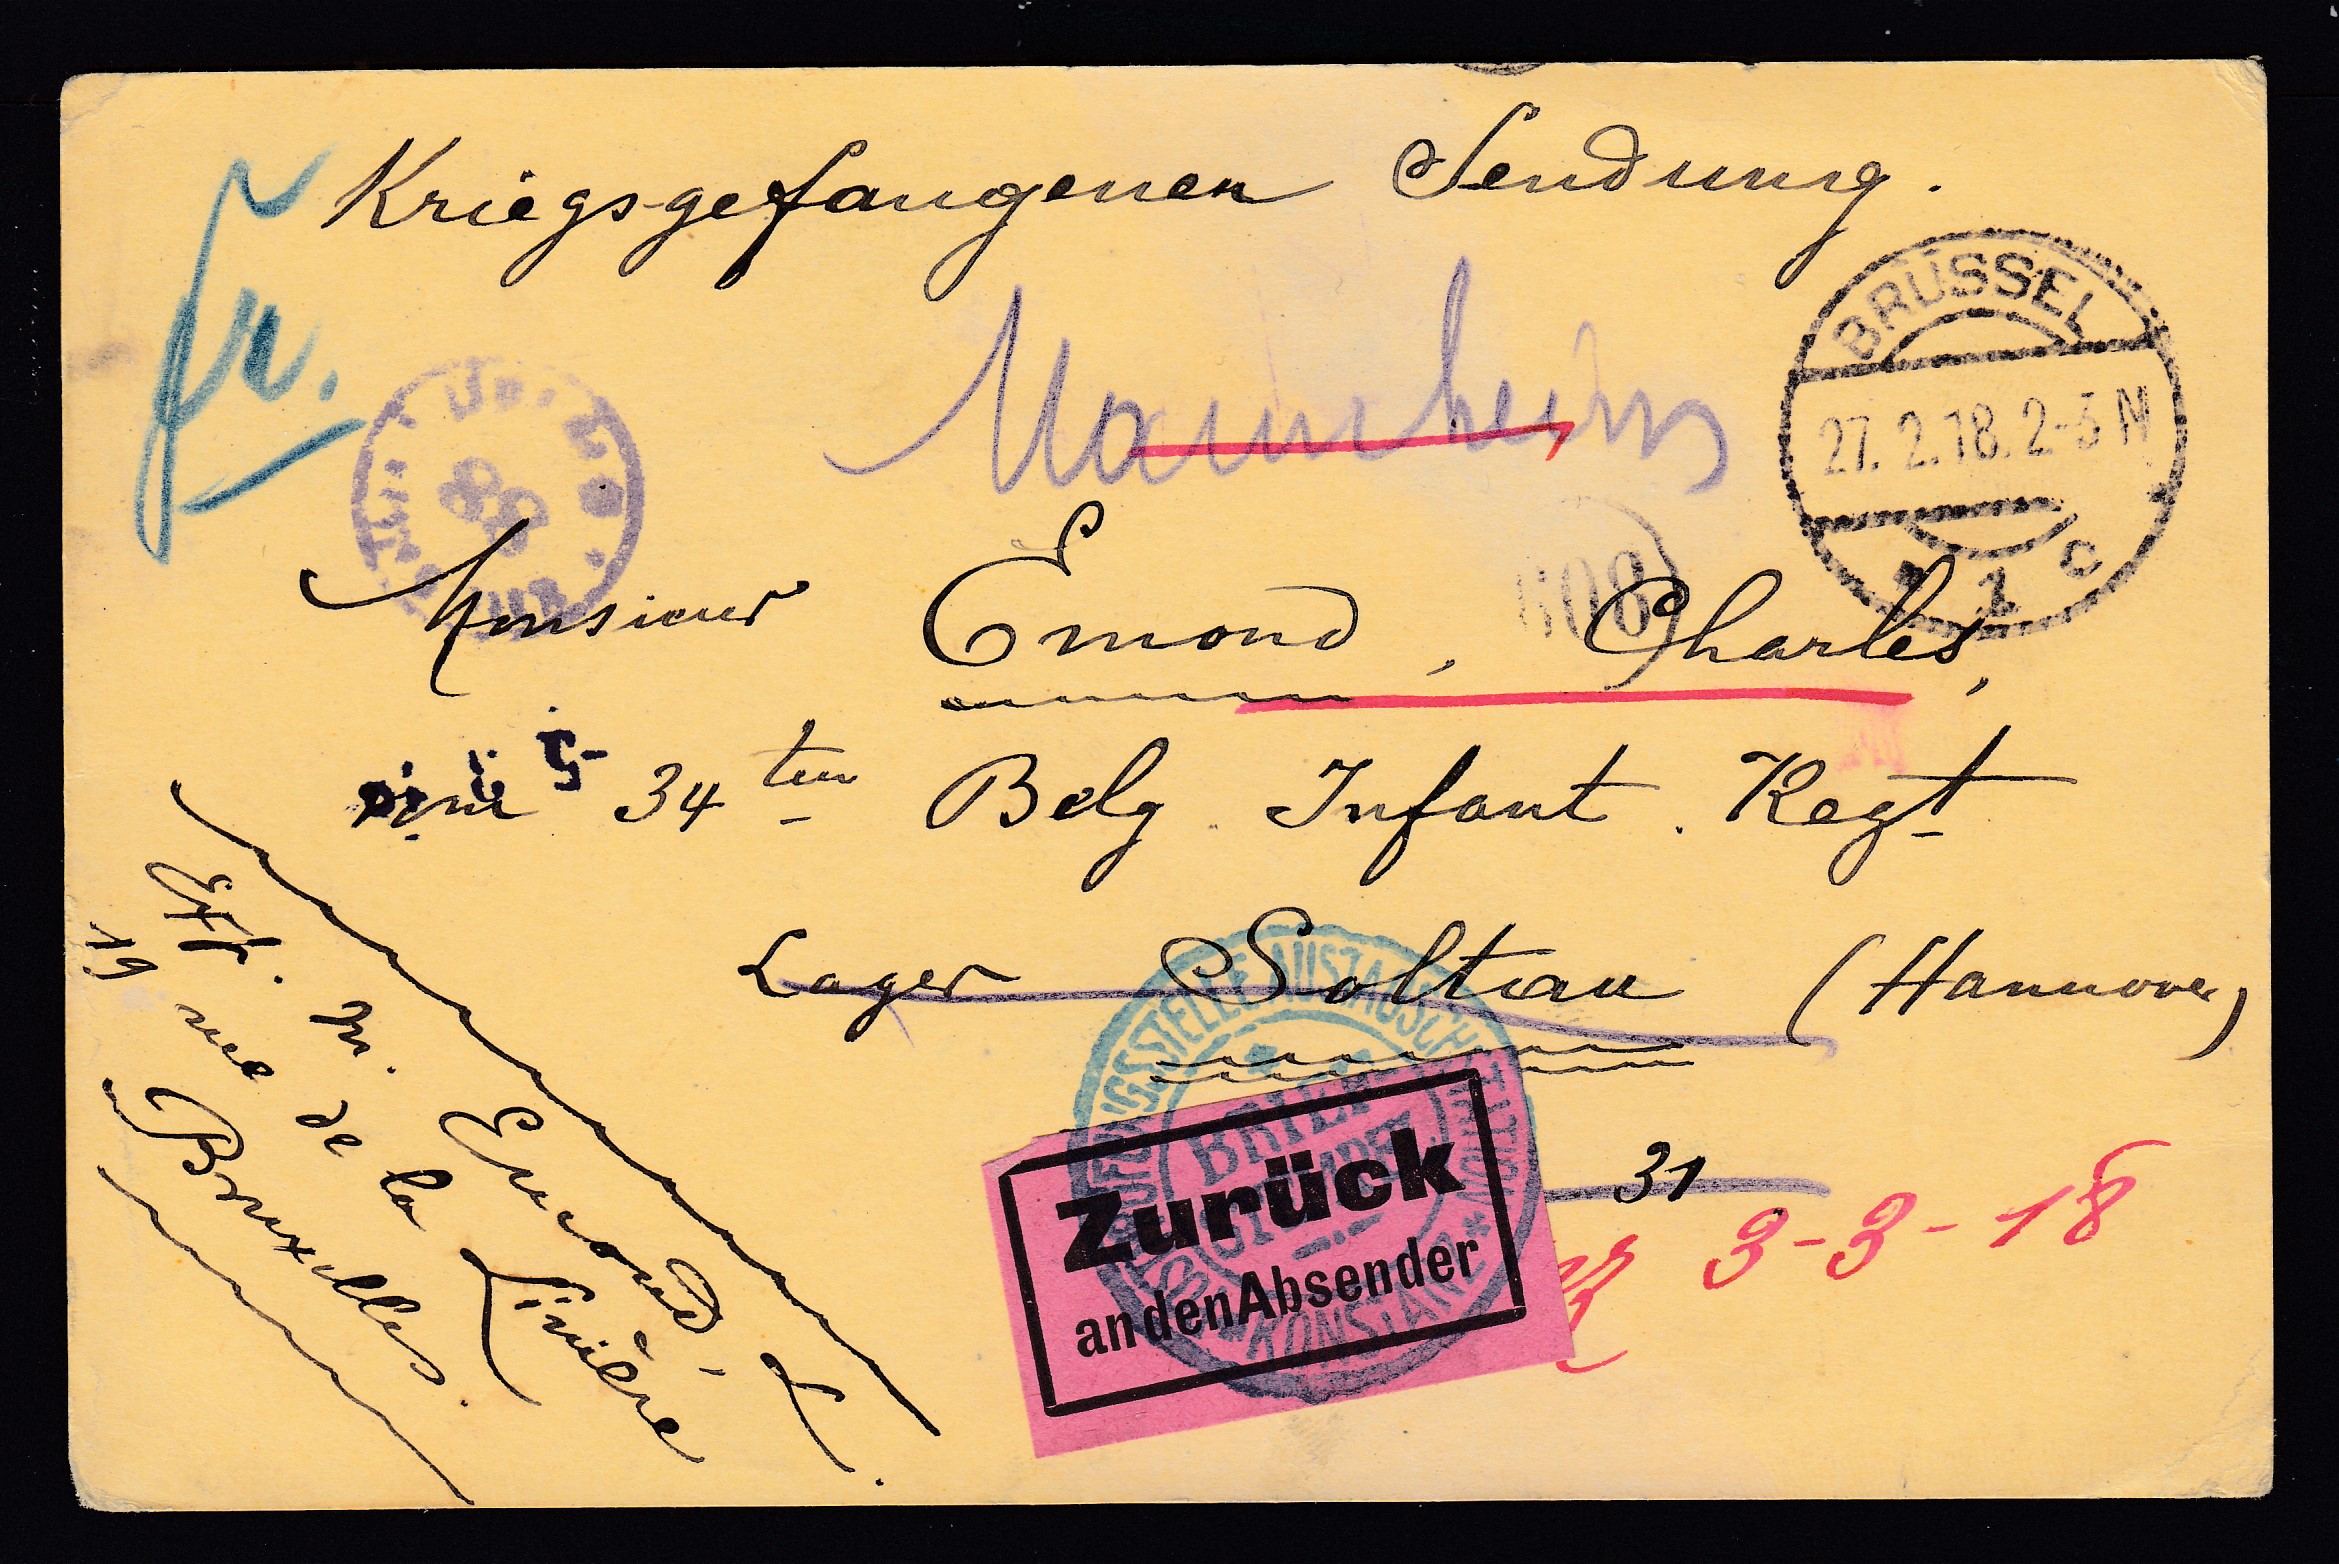 Kriegsgefangenen Sendung.
fr.
BRÜSSEL
27. 2.18. 2-3 N
* 1 c
Mannheim
608
Monsieur Emond, Charles,
34ten Belg. Infant. Regt
Lager Soltau (Hannover)
31
3-3-18
AUSTAUSCH
BRIEF
KONSTANZ
Zurück
an den Absender
Exp. M. Emond, L.
19 rue de la Linière
Bruxelles.